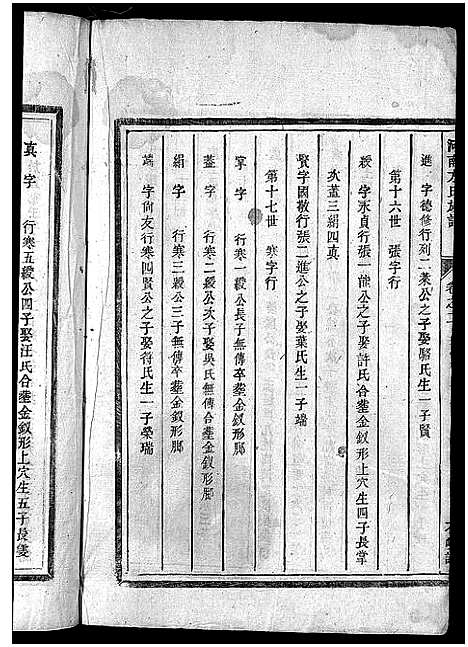 河南方氏族譜
卷之二
進 字德修行列二葉公之子娶駱氏生一子賢
第十六世 張字行
綬 字永貞行張一 公之子娶許氏合塟金釵形上穴生四子長掌
次蓋三絹四真
賢字國敬行張二進公之子娶葉氏生一子端
第十七世 寒字行
掌 字 行寒一綬公長子無傳卒塟金釵形脚
蓋 字 行寒二綬公次子娶吳氏無傳合塟金釵形脚
絹 字 行寒三綬公三子無傳卒塟金釵形脚
端 字向友行寒四賢公之子娶符氏生一子榮瑞
真 字 行寒五綬公四子娶汪氏合塟金釵形上穴生五子長